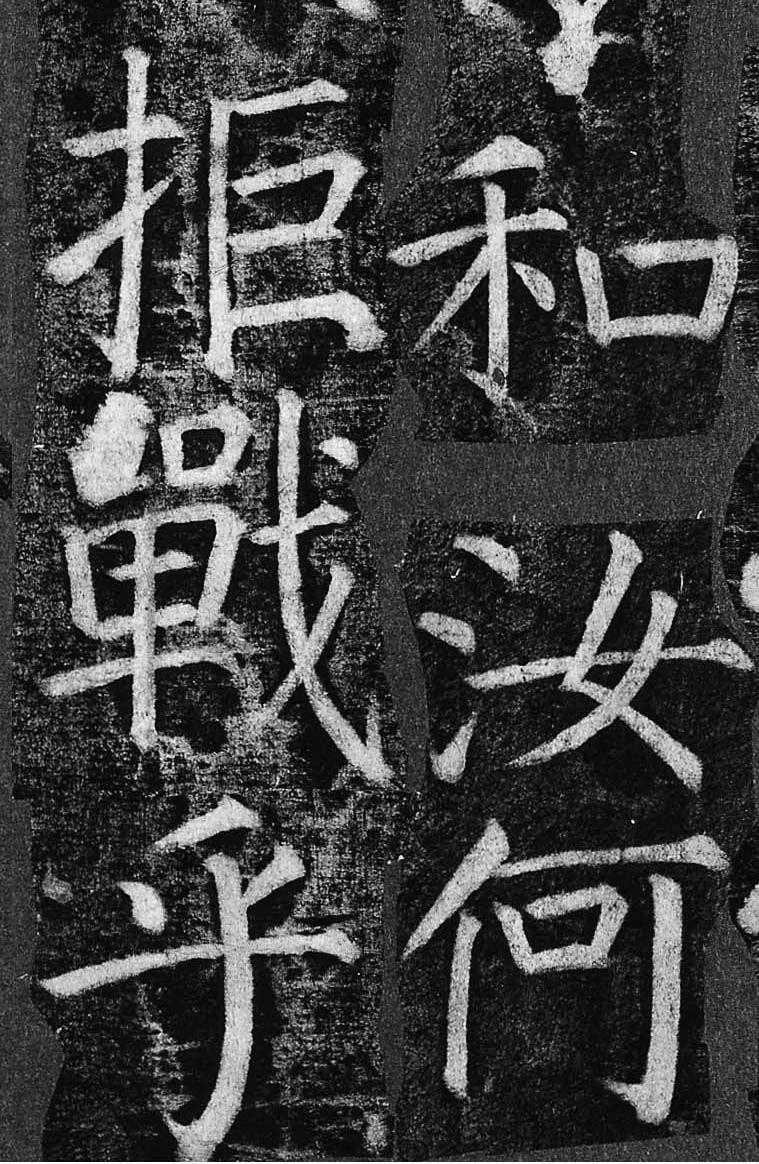 和汝何
拒戰乎